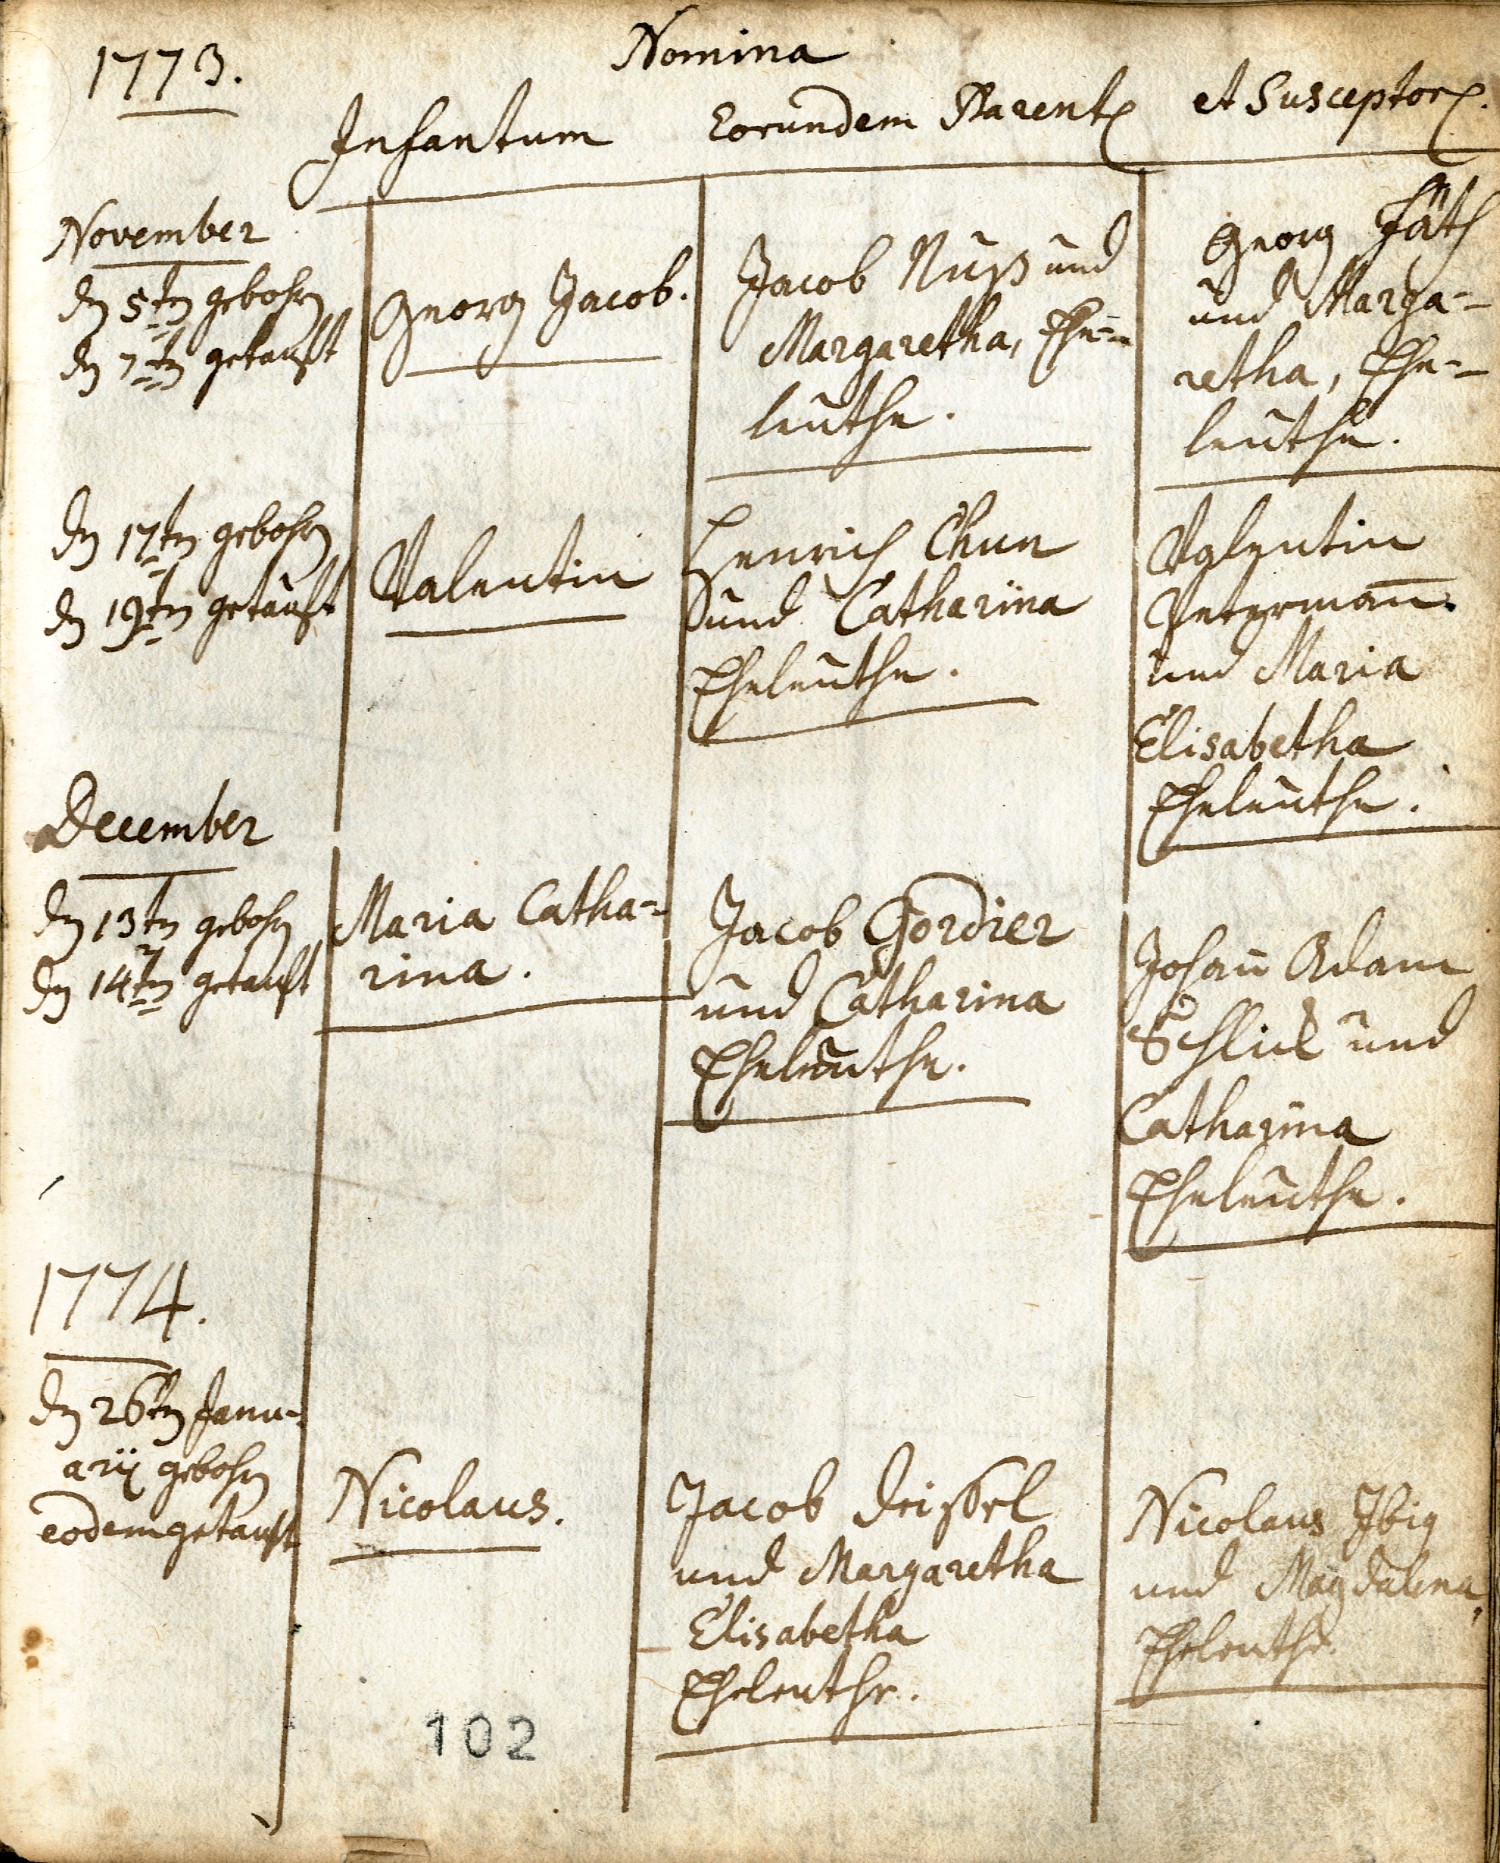 1773.
Nomina
Infantum
Eorundem Parent.
et Susceptor.
November
den 5ten gebohren
den 7ten getauft
Georg Jacob.
Jacob Nuß und
Margaretha, Ehe=
leuthe.
Georg Fäth
und Marga=
retha, Ehe=
leuthe.
den 17ten gebohren
den 19ten getauft
Valentin
Henrich Chun
und Catharina
Eheleuthe.
Valentin
Petermañ
und Maria
Elisabetha
Eheleuthe.
December
den 13ten gebohren
den 14ten getauft
Maria Catha=
rina.
Jacob Gordier
und Catharina
Eheleuthe.
Johañ Adam
Schlick und
Catharina
Eheleuthe.
1774.
den 26ten Janu=
arij gebohren
eodem getauft
Nicolaus.
Jacob
und Margaretha
Elisabetha
Eheleuthe.
Nicolaus Ibig
und Magdalena,
Eheleuthe.
102